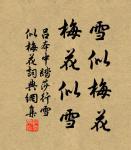 雪似梅花
梅花似雪
呂本中踏莎行雪
似梅花詞典網集